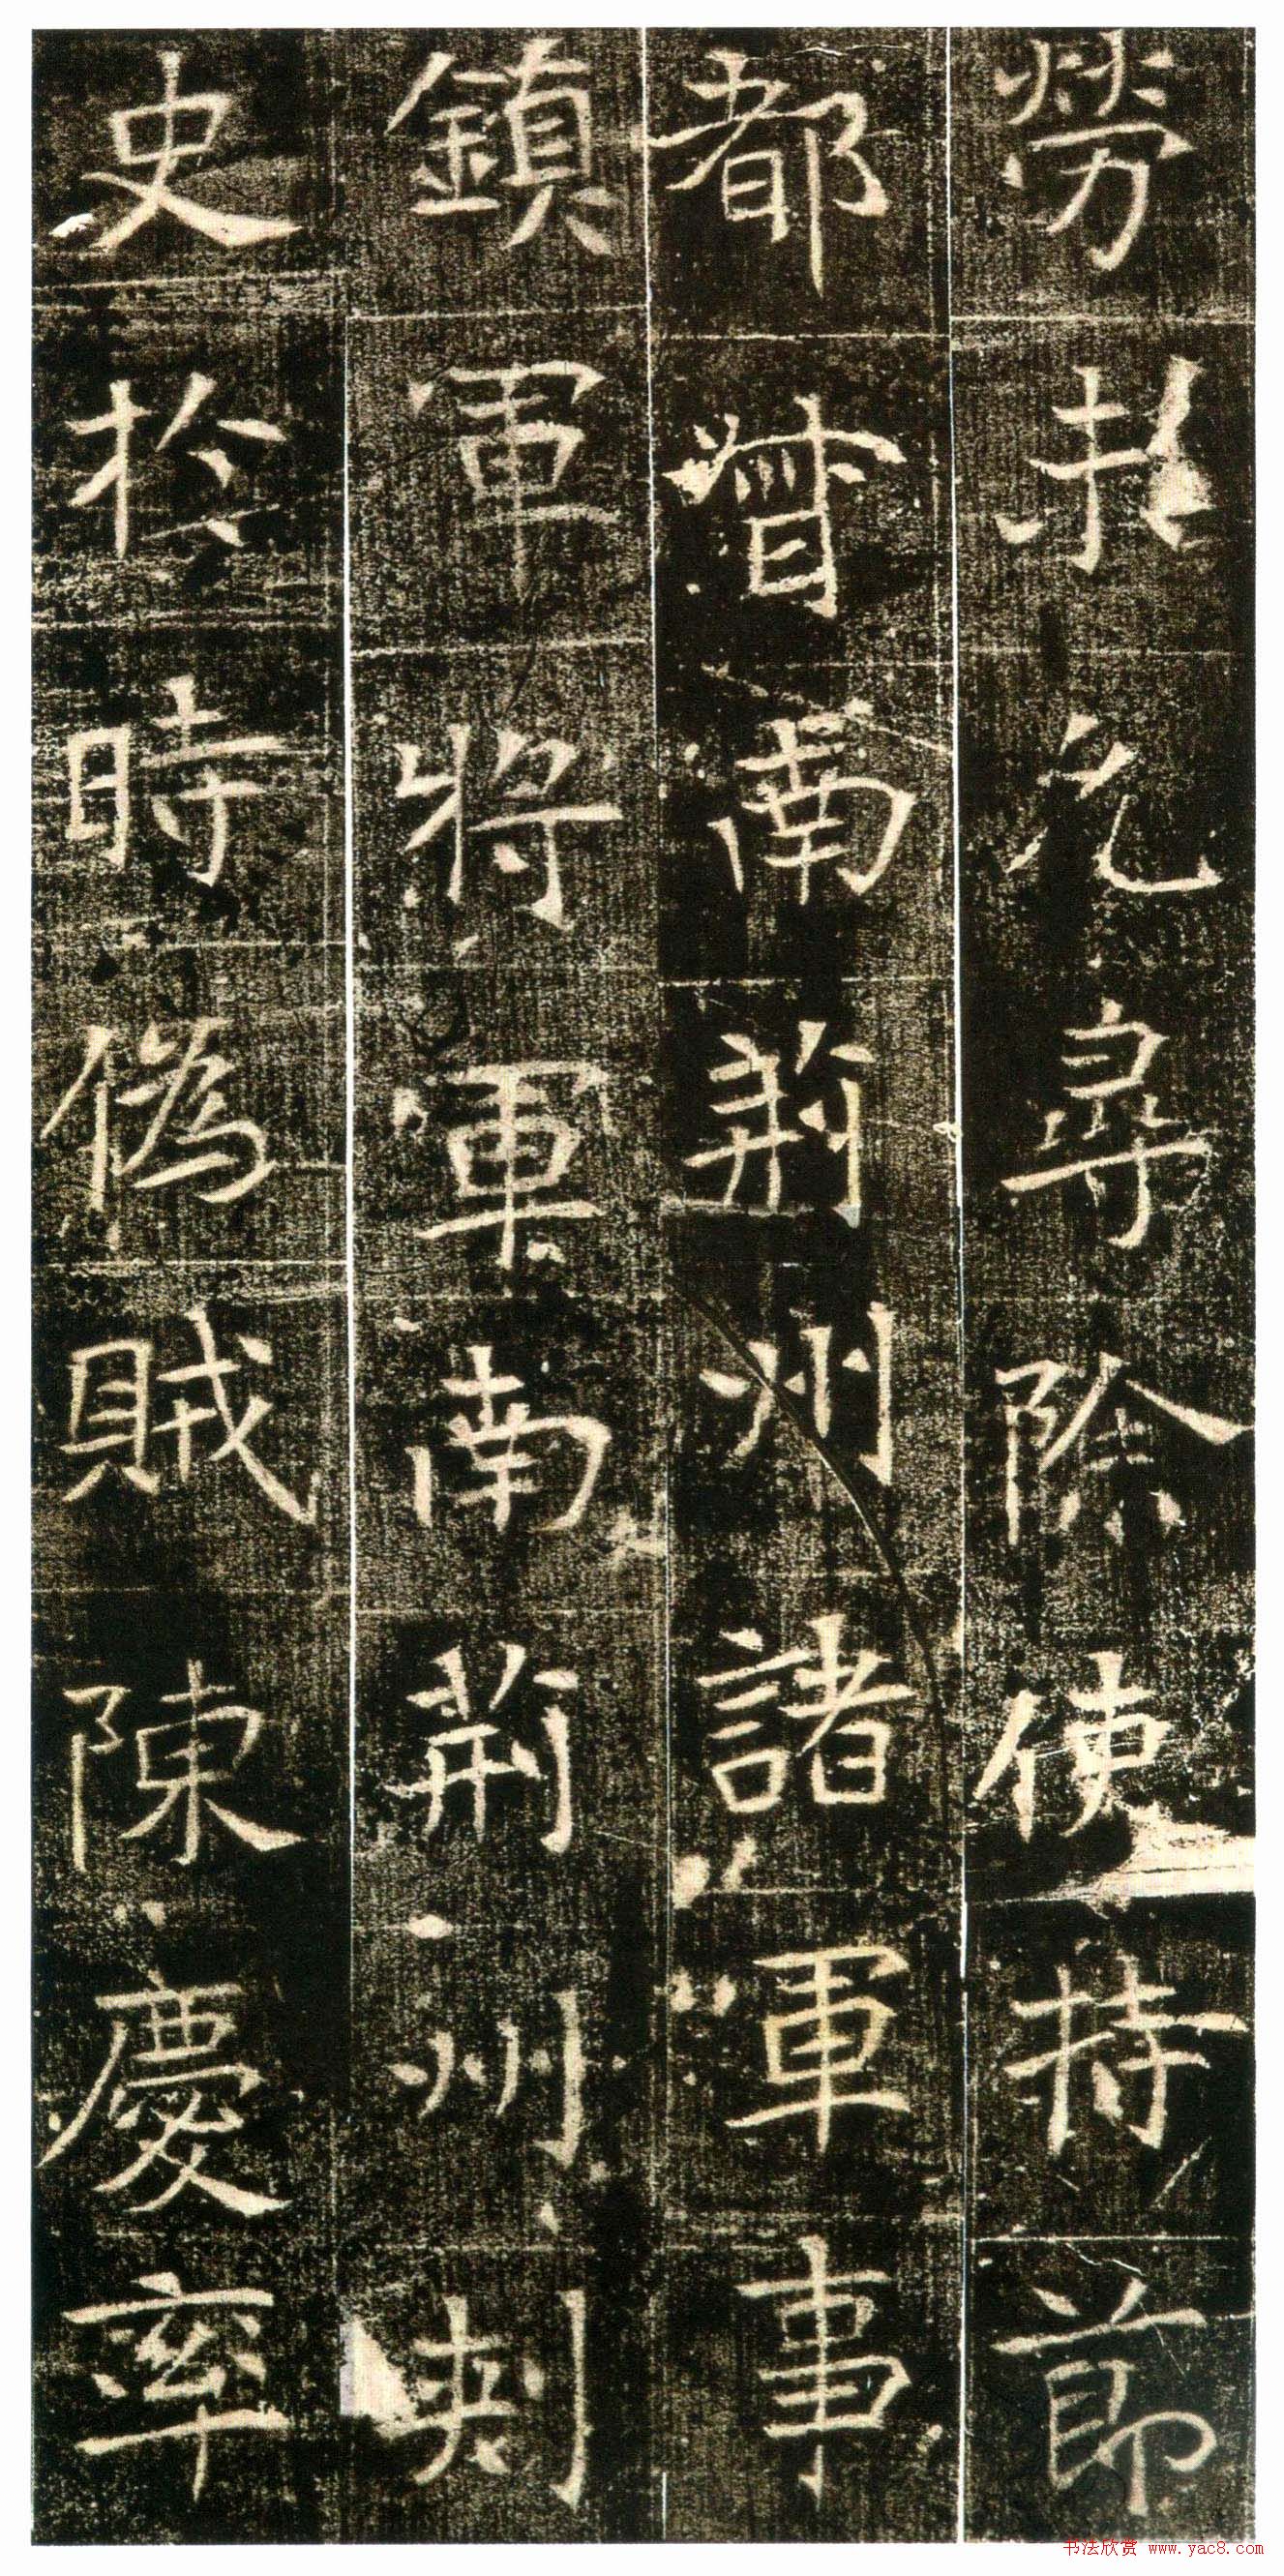 勞於允尋除使持節
都督南荊州諸軍事
鎮軍將軍南荊州刺
史於時偽賊陳慶率
书法欣赏 www.yac8.com